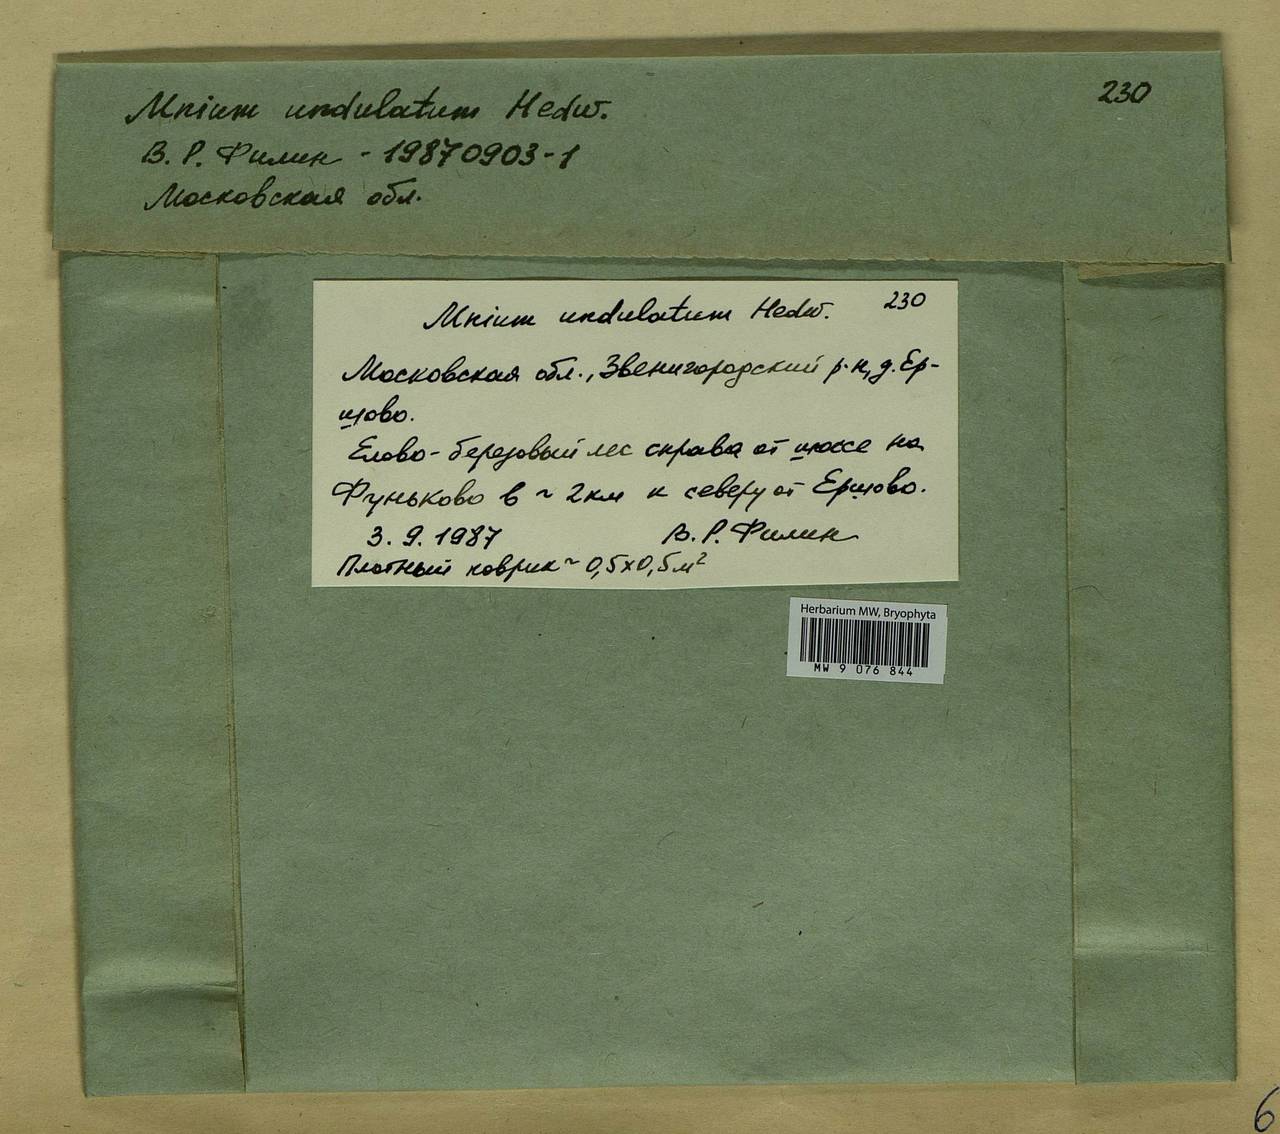 Mnium undulatum Hedw.
230
В. Р. Филин - 19870903-1
Московская обл.
Mnium undulatum Hedw.
230
Московская обл., Звенигородский р-н, д. Ер-
шово.
Елово-березовый лес справа от шоссе на
Фуньково в ~ 2 км к северу от Ершово.
3. 9. 1987 В. Р. Филин
Плотный коврик ~ 0,5×0,5 м²
Herbarium MW, Bryophyta
MW 9 076 844
6